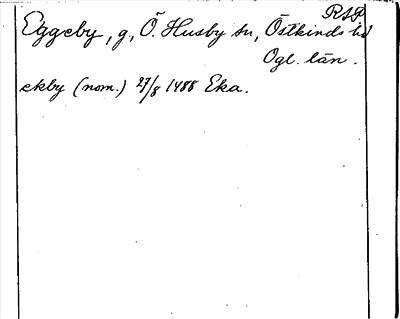 RSP
Eggeby, g, Ö. Husby sn, Östkinds hd
Ögl. län.
ekby (nom.) 27/8 1488 Eka.